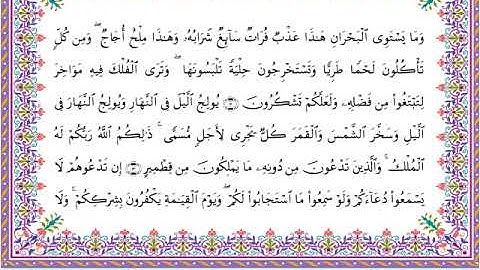 وَمَا يَسْتَوِى ٱلْبَحْرَانِ هَٰذَا عَذْبٌ فُرَاتٌ سَآئِغٌ شَرَابُهُۥ وَهَٰذَا مِلْحٌ أُجَاجٌ ۖ وَمِن كُلٍّ
تَأْكُلُونَ لَحْمًا طَرِيًّا وَتَسْتَخْرِجُونَ حِلْيَةً تَلْبَسُونَهَا ۖ وَتَرَى ٱلْفُلْكَ فِيهِ مَوَاخِرَ
لِتَبْتَغُوا۟ مِن فَضْلِهِۦ وَلَعَلَّكُمْ تَشْكُرُونَ ۝١٢ يُولِجُ ٱلَّيْلَ فِى ٱلنَّهَارِ وَيُولِجُ ٱلنَّهَارَ فِى
ٱلَّيْلِ وَسَخَّرَ ٱلشَّمْسَ وَٱلْقَمَرَ كُلٌّ يَجْرِى لِأَجَلٍ مُّسَمًّى ۚ ذَٰلِكُمُ ٱللَّهُ رَبُّكُمْ لَهُ
ٱلْمُلْكُ ۚ وَٱلَّذِينَ تَدْعُونَ مِن دُونِهِۦ مَا يَمْلِكُونَ مِن قِطْمِيرٍ ۝١٣ إِن تَدْعُوهُمْ لَا
يَسْمَعُوا۟ دُعَآءَكُمْ وَلَوْ سَمِعُوا۟ مَا ٱسْتَجَابُوا۟ لَكُمْ ۖ وَيَوْمَ ٱلْقِيَٰمَةِ يَكْفُرُونَ بِشِرْكِكُمْ ۚ وَلَا